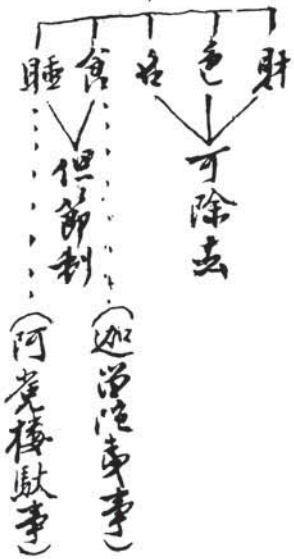 財
色
名
食
睡
可除去
但節制
（迦留陀夷事）
（阿㝹樓馱事）